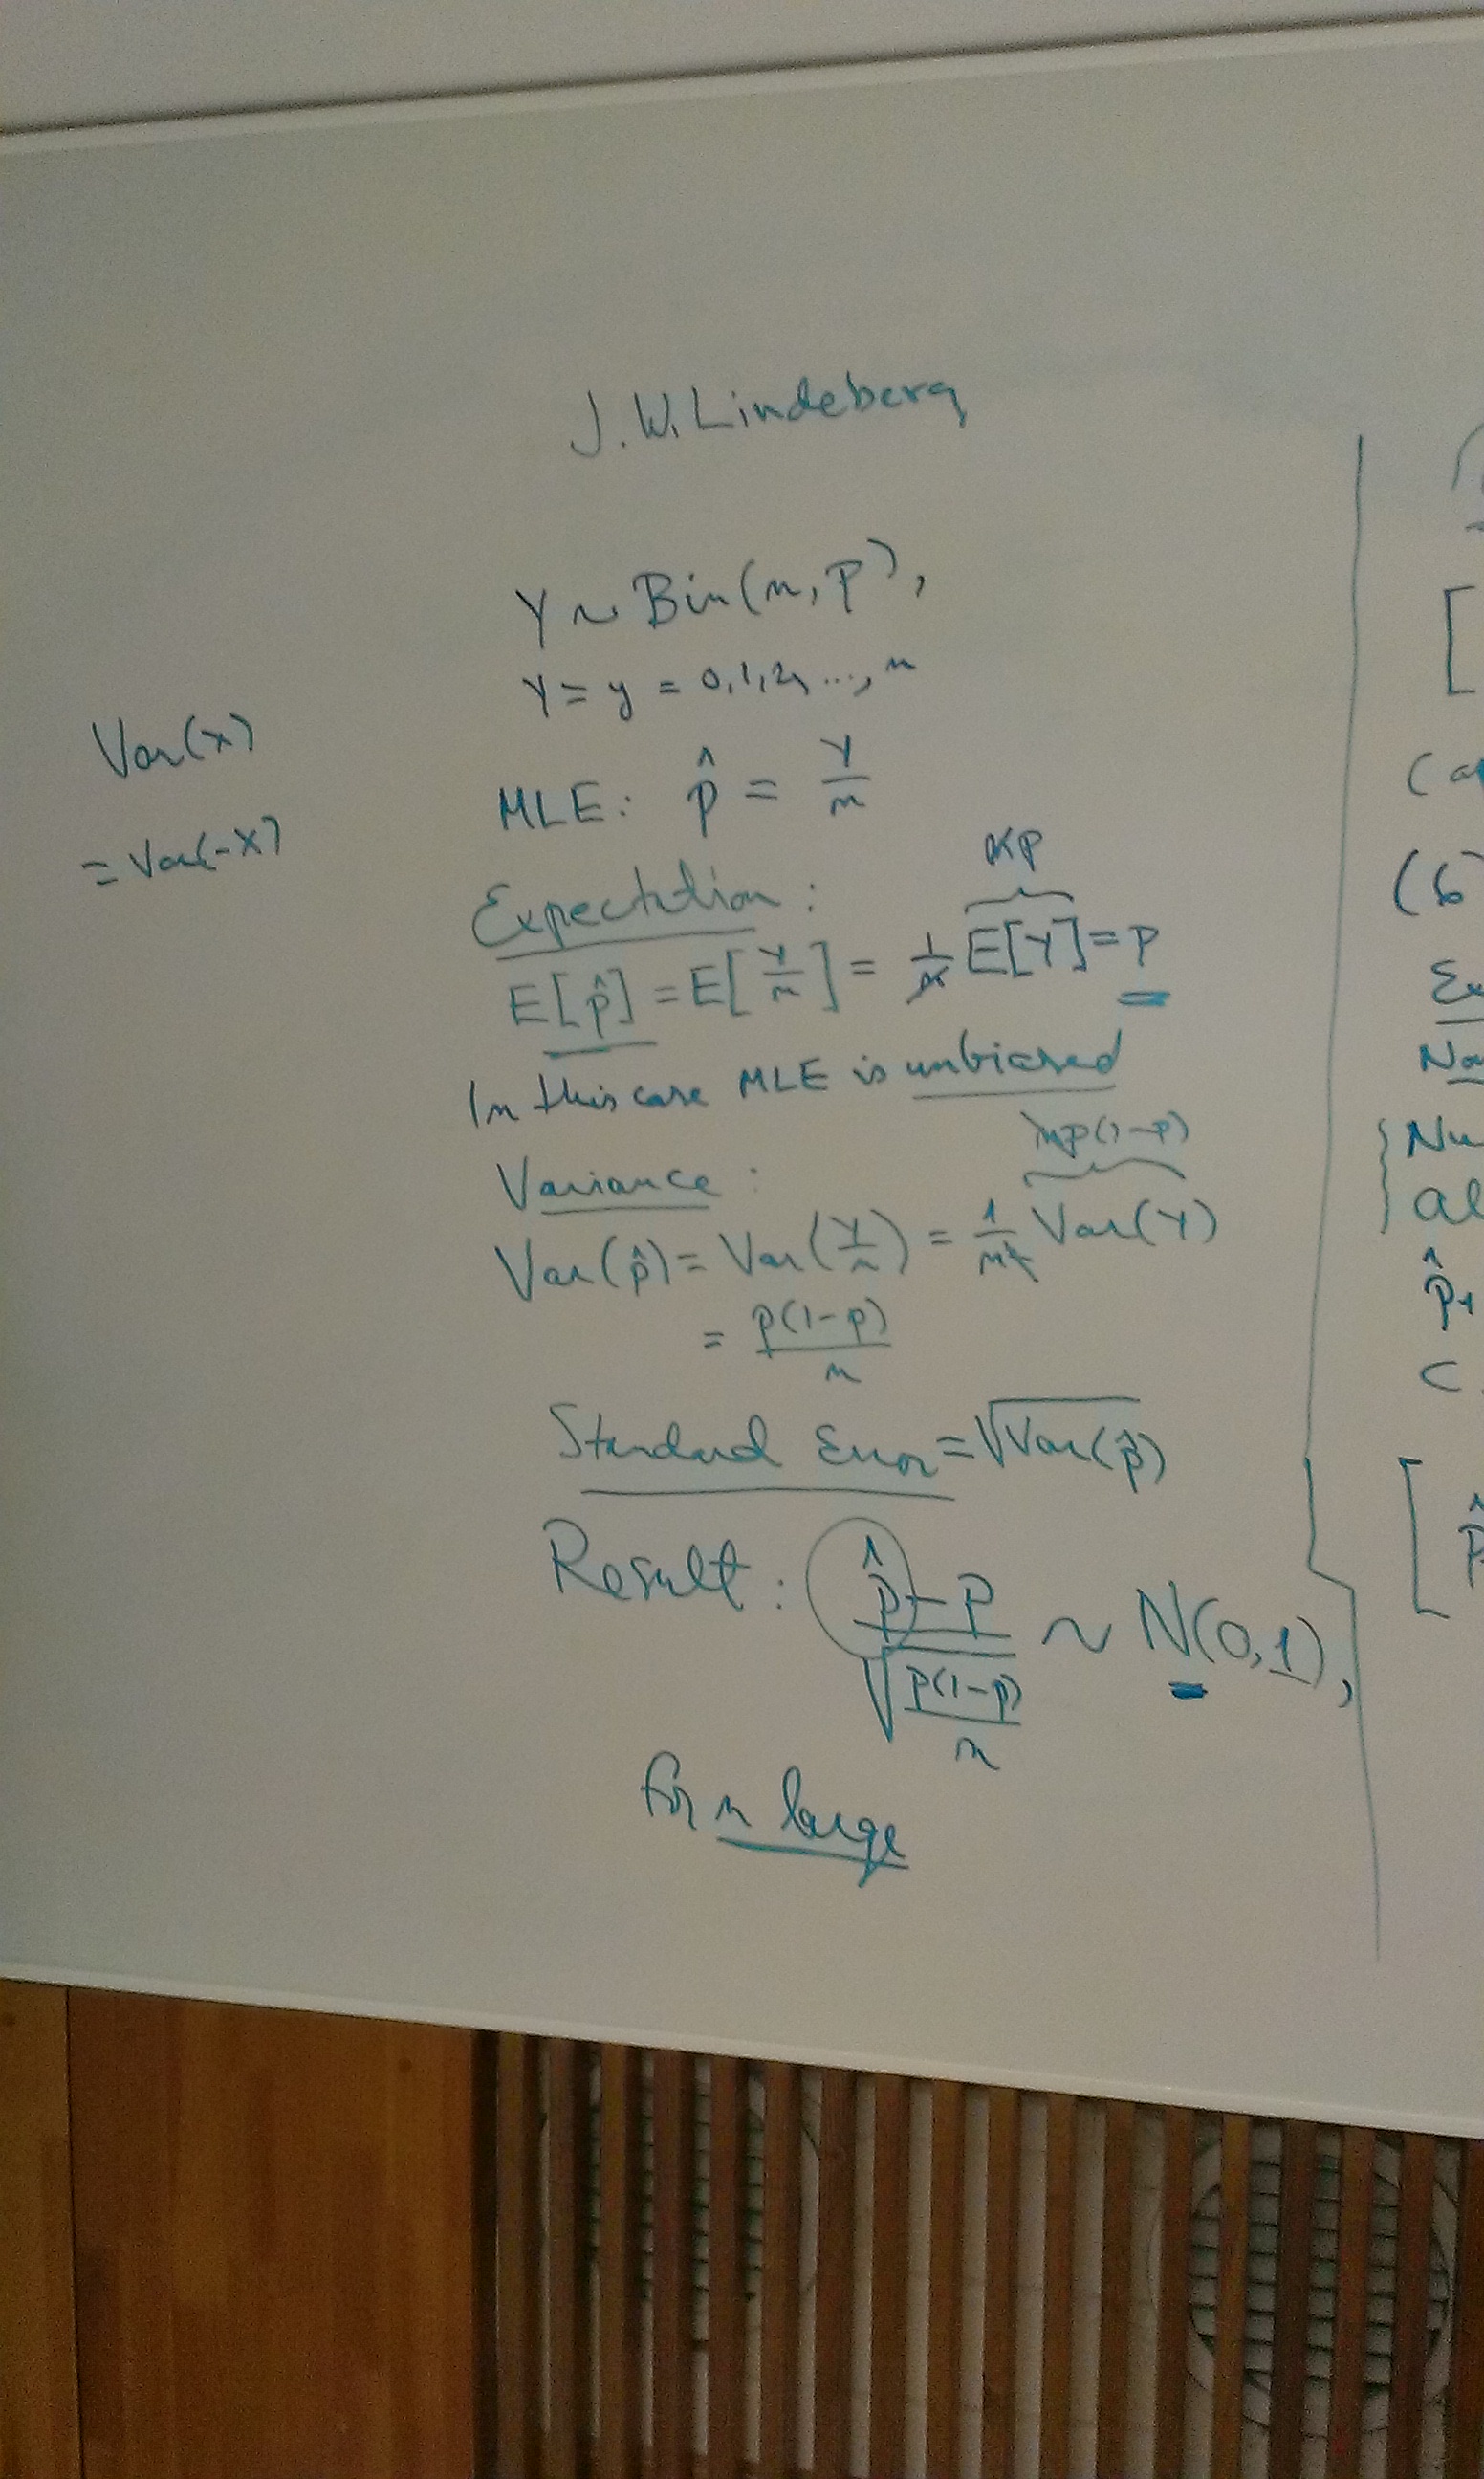 J.W. Lindeberg
Y ~ Bin(n, p),
Y = y = 0, 1, 2, ..., n
Var(X)
= Var(-X)
MLE: p̂ = Y/n
Expectation:
np
E[p̂] = E[Y/n] = 1/n E[Y] = p
In this case MLE is unbiased
Variance:
np(1-p)
Var(p̂) = Var(Y/n) = 1/n² Var(Y)
= p(1-p)/n
Standard Error = √Var(p̂)
Result: (p̂ - p)/√(p(1-p)/n) ~ N(0, 1),
for n large
[
(6)
Ex
No
Nu
al
p̂1
C
[ p̂